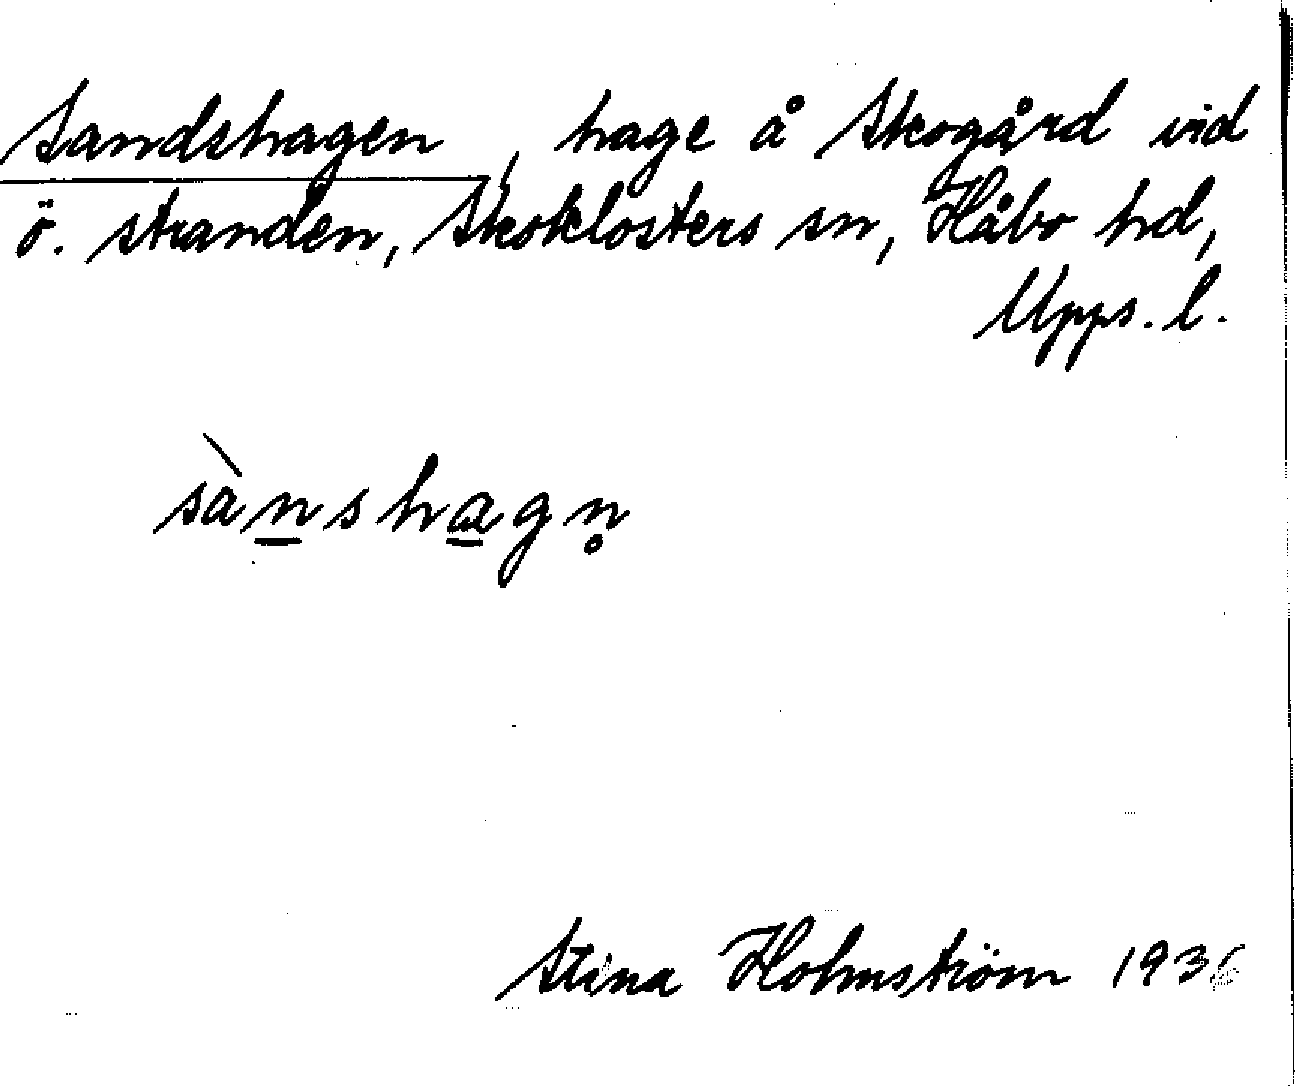 Sandshagen, hage å Skogård vid
ö. stranden, Skoklosters sn, Håbo hd,
Upps. l.
sànshagn̥
Stina Holmström 1936